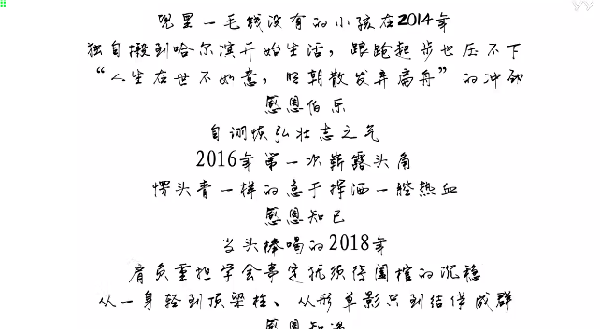 兜里一毛钱没有的小孩在2014年
独自搬到哈尔滨开始生活，踉跄起步也压不下
“人生在世不如意，明朝散发弄扁舟”的冲
感恩伯乐
自诩恢弘壮志之气
2016年第一次崭露头角
愣头青一样的急于挥洒一腔热血
感恩知己
当头棒喝的2018年
肩负重担学会事定犹须待阖棺的沉稳
从一身轻到顶梁柱、从形单影只到结伴成群
感恩知